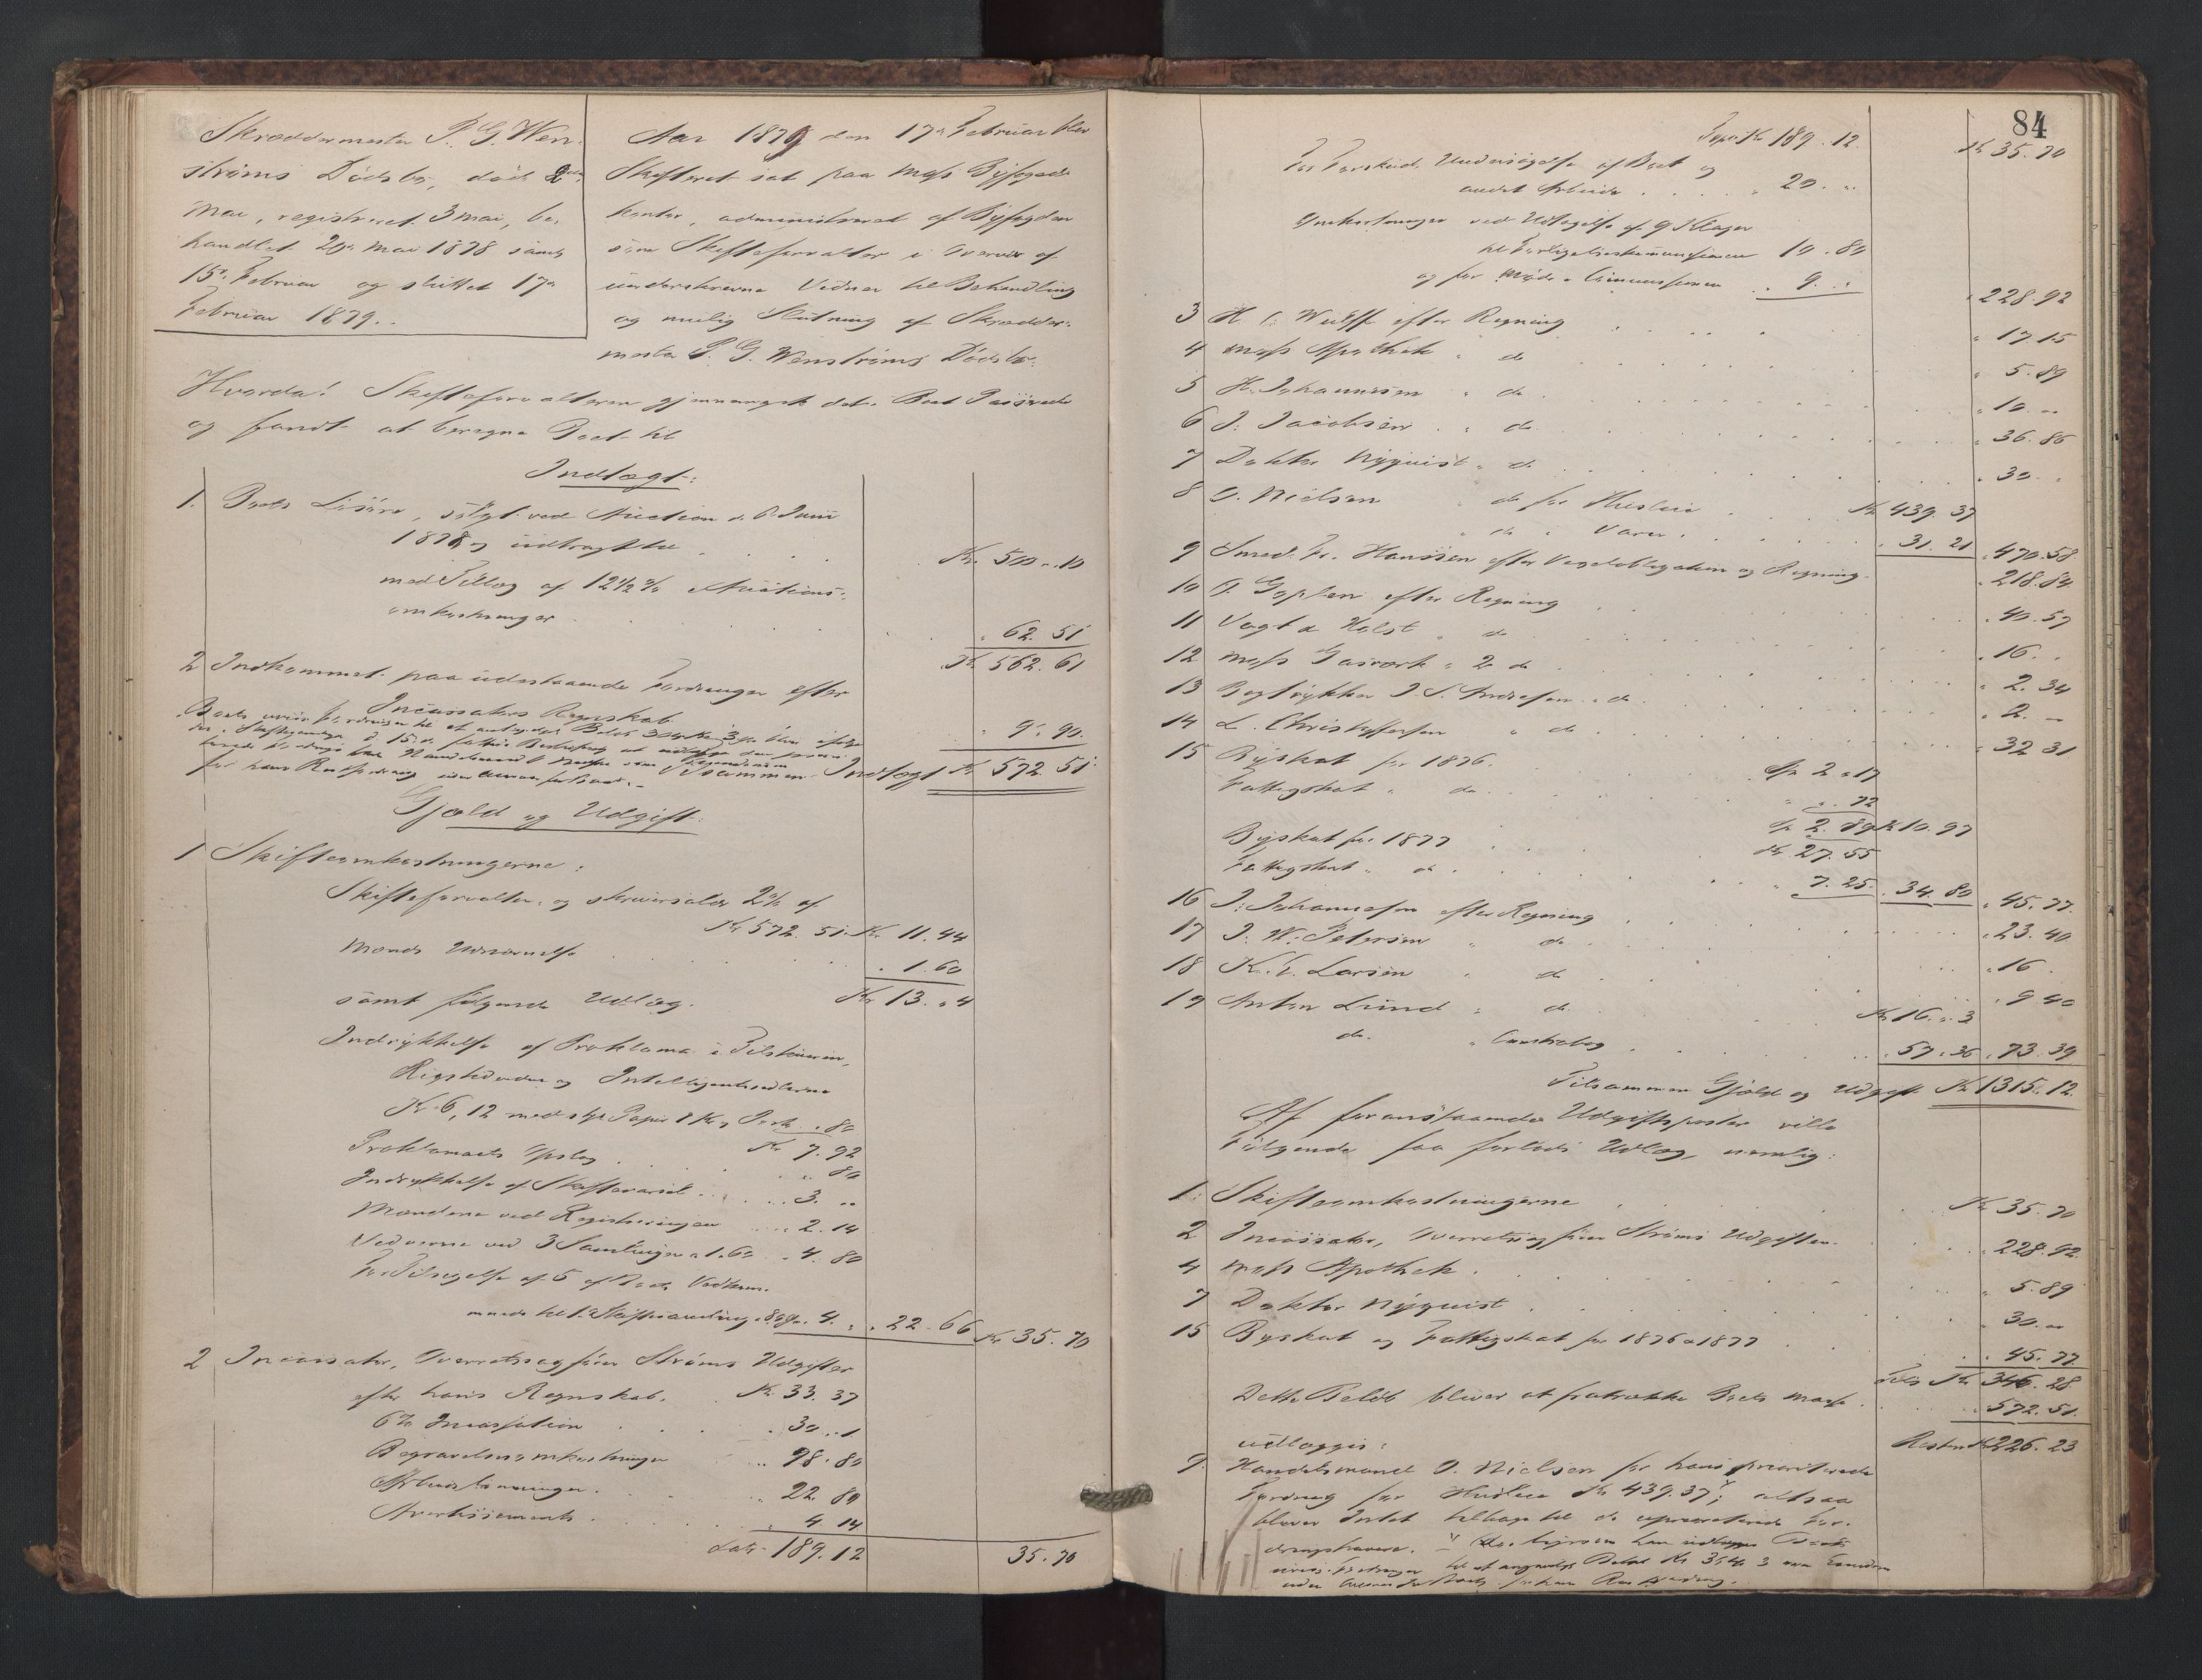 Skræddermester P. G. Wen-
strøms Dødsbo, død 2den
Mai, registreret 3 Mai, be-
handlet 20de Mai 1878 samt
15de Februar og sluttet 17de
Februar 1879.
Aar 1879 den 17de Februar blev
Skifteret sat paa Moss Byfogeds
kontor, administreret af Byfogden
som Skifteforvalter i Overvær af
underskrevne Vidner til Behandling
og mulig Slutning af Skrædder-
mester P. G. Wenstrøms Dødsbo.
Hvorda: Skifteforvalteren gjennemgik det i Boet Passerede
og fandt at beregne Boets
Indtægt:
1. Boets Løsøre, solgt ved Auction d. 6 Juni
1878 og udbragt til Kr. 500.10
med Tillæg af 12 1/2 % Auctions-
omkostninger 62.51
Kr 562.61
2 Indkommet paa udestaaende Fordringer efter
Incassators Regnskab 9.90
Tilsammen Indtægt Kr 572.51
Gjæld og Udgift:
1 Skifteomkostningerne:
Skifteforvalter- og skriversalær 2% af
Kr 572.51 Kr 11.44
Mænds Udnævnelse 1.60
samt følgende Udlæg. Kr 13.04
Indrykkelse af Proklama i Tilskueren,
Rigstidende og Intelligentssedlerne
Kr 6,12 med st. Papir 1 Kr, Port. .80
Kr 7.92
Proklamaets Opslag 80
Indrykkelse af Skiftevarsel 3. "
Mændene ved Registreringen 2.14
Vidnerne ved 3 Samlinger a 1.60 4.80
For Tilsigelse af 5 af Boets Vedkom-
mende til 1. Skiftesamling a 80 Øre 4. " 22.66 Kr 35.70
2 Incassator, Overretssagfører Strøms Udgifter
efter hans Regnskab Kr 33.37
6% Incassation 30.01
Begravelsesomkostninger 98.80
22.80
Avertissements 4.14
Lats 189.12 35.70
84
Transp. Kr 189.12 Kr 35.70
For Forskud, Undersøgelse af Boet og
andet Arbeide 20. "
Omkostninger ved Udtagelse af 9 Klager
til Forligelseskommissionen 10.80
og for Møde i Commissionen 9. " 228.92
3 H. C. Wulff efter Regning 17.15
4 Moss Apothek " do 5.89
5 H. Johannesen " do 10. "
6 J. Jacobsen " do 36.86
7 Doktor Nyquist " do 30. "
8 O. Nielsen " do for Husleie Kr 439.37
" do " Varer 31.21 470.58
9 Smed Fr. Hanssen efter Vexelobligation og Regning 218.84
10 O. Goplen efter Regning 40.57
11 Vogt & Holst " do 16. "
12 Moss Gasværk " 2 do 2.34
13 Bogtrykker do 2. "
14 L. Christoffersen " do 32.31
15 Byskat for 1876 Sp 2.17
Fattigskat " do " 72
Sp 2.89 Kr 10.97
Byskat for 1877 Kr 27.55
Fattigskat " do 7.25 34.80 45.77
16 J. Johannesen efter Regning 23.40
17 J. W. Petersen " do 16.
18 K. E. Larsen " do 9.40
19 Anton Lund " do Kr 16.03
do. " Contrabog 57.36 73.39
Tilsammen Gjæld og Udgift Kr 1315.12
Af foranstaaende Udgiftsposter ville
Følgende faa forlods Udlæg, nemlig:
1. Skifteomkostningerne Kr 35.70
2 Incassator, Overretssagfører Strøms Udgifter 228.92
4 Moss Apothek 5.89
7 Doktor Nyquist 30. "
15 Byskat og Fattigskat for 1876 & 1877 45.77
Tils Kr 346.28
Dette Beløb bliver at fratrække Boets Masse 572.51
Resten Kr 226.23
udlægges:
Handelsmand O. Nielsen for hans prioriterede
Fordring for Husleie Kr 439.37; altsaa
bliver Intet tilbage til de uprioriterede For-
dringshavere.